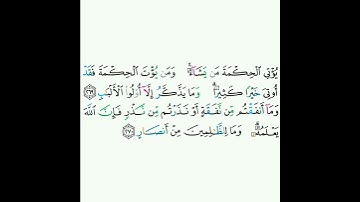 يُؤْتِى الْحِكْمَةَ مَن يَشَآءُ ۚ وَمَن يُؤْتَ الْحِكْمَةَ فَقَدْ
أُوتِىَ خَيْرًا كَثِيرًا ۗ وَمَا يَذَّكَّرُ إِلَّآ أُو۟لُوا۟ الْأَلْبَٰبِ ٢٦٩
وَمَآ أَنفَقْتُم مِّن نَّفَقَةٍ أَوْ نَذَرْتُم مِّن نَّذْرٍ فَإِنَّ اللَّهَ
يَعْلَمُهُۥ ۗ وَمَا لِلظَّٰلِمِينَ مِنْ أَنصَارٍ ٢٧٠